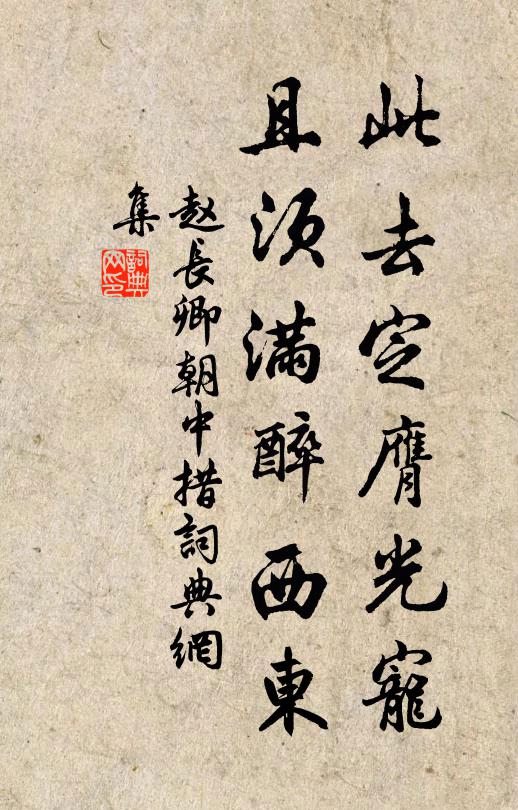 此去定膺光寵
且須滿醉西東
赵長卿朝中措詞典網
集
詞典網印